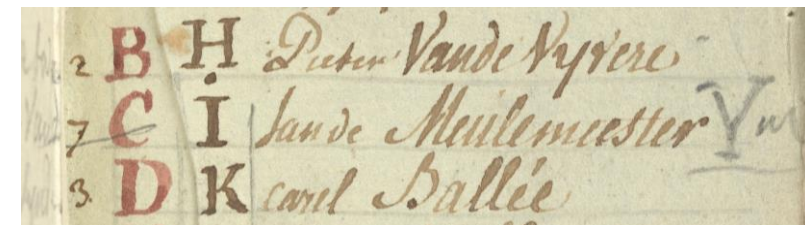 2 B H Pieter Vande Vyvere
7 C I Jan de Meulemeester
3. D K Carel Ballée